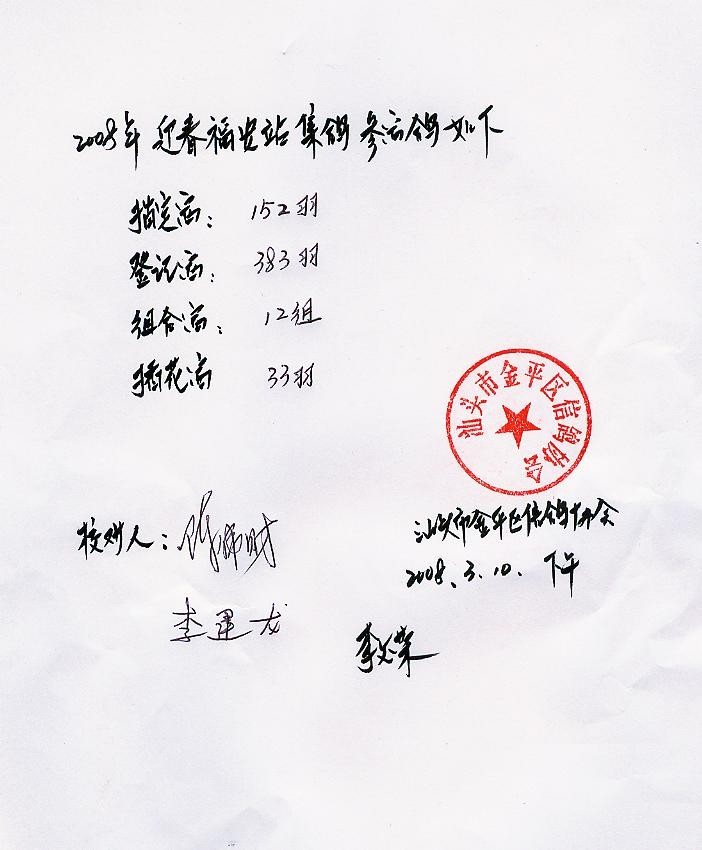 2008年迎春福安站集鸽参云鸽如下
指定鸽: 152羽
登记鸽: 383羽
组合鸽: 12组
插花鸽 33羽
汕头市金平区信鸽协会
校对人:
汕头市金平区信鸽协会
2008.3.10.下午
李建龙